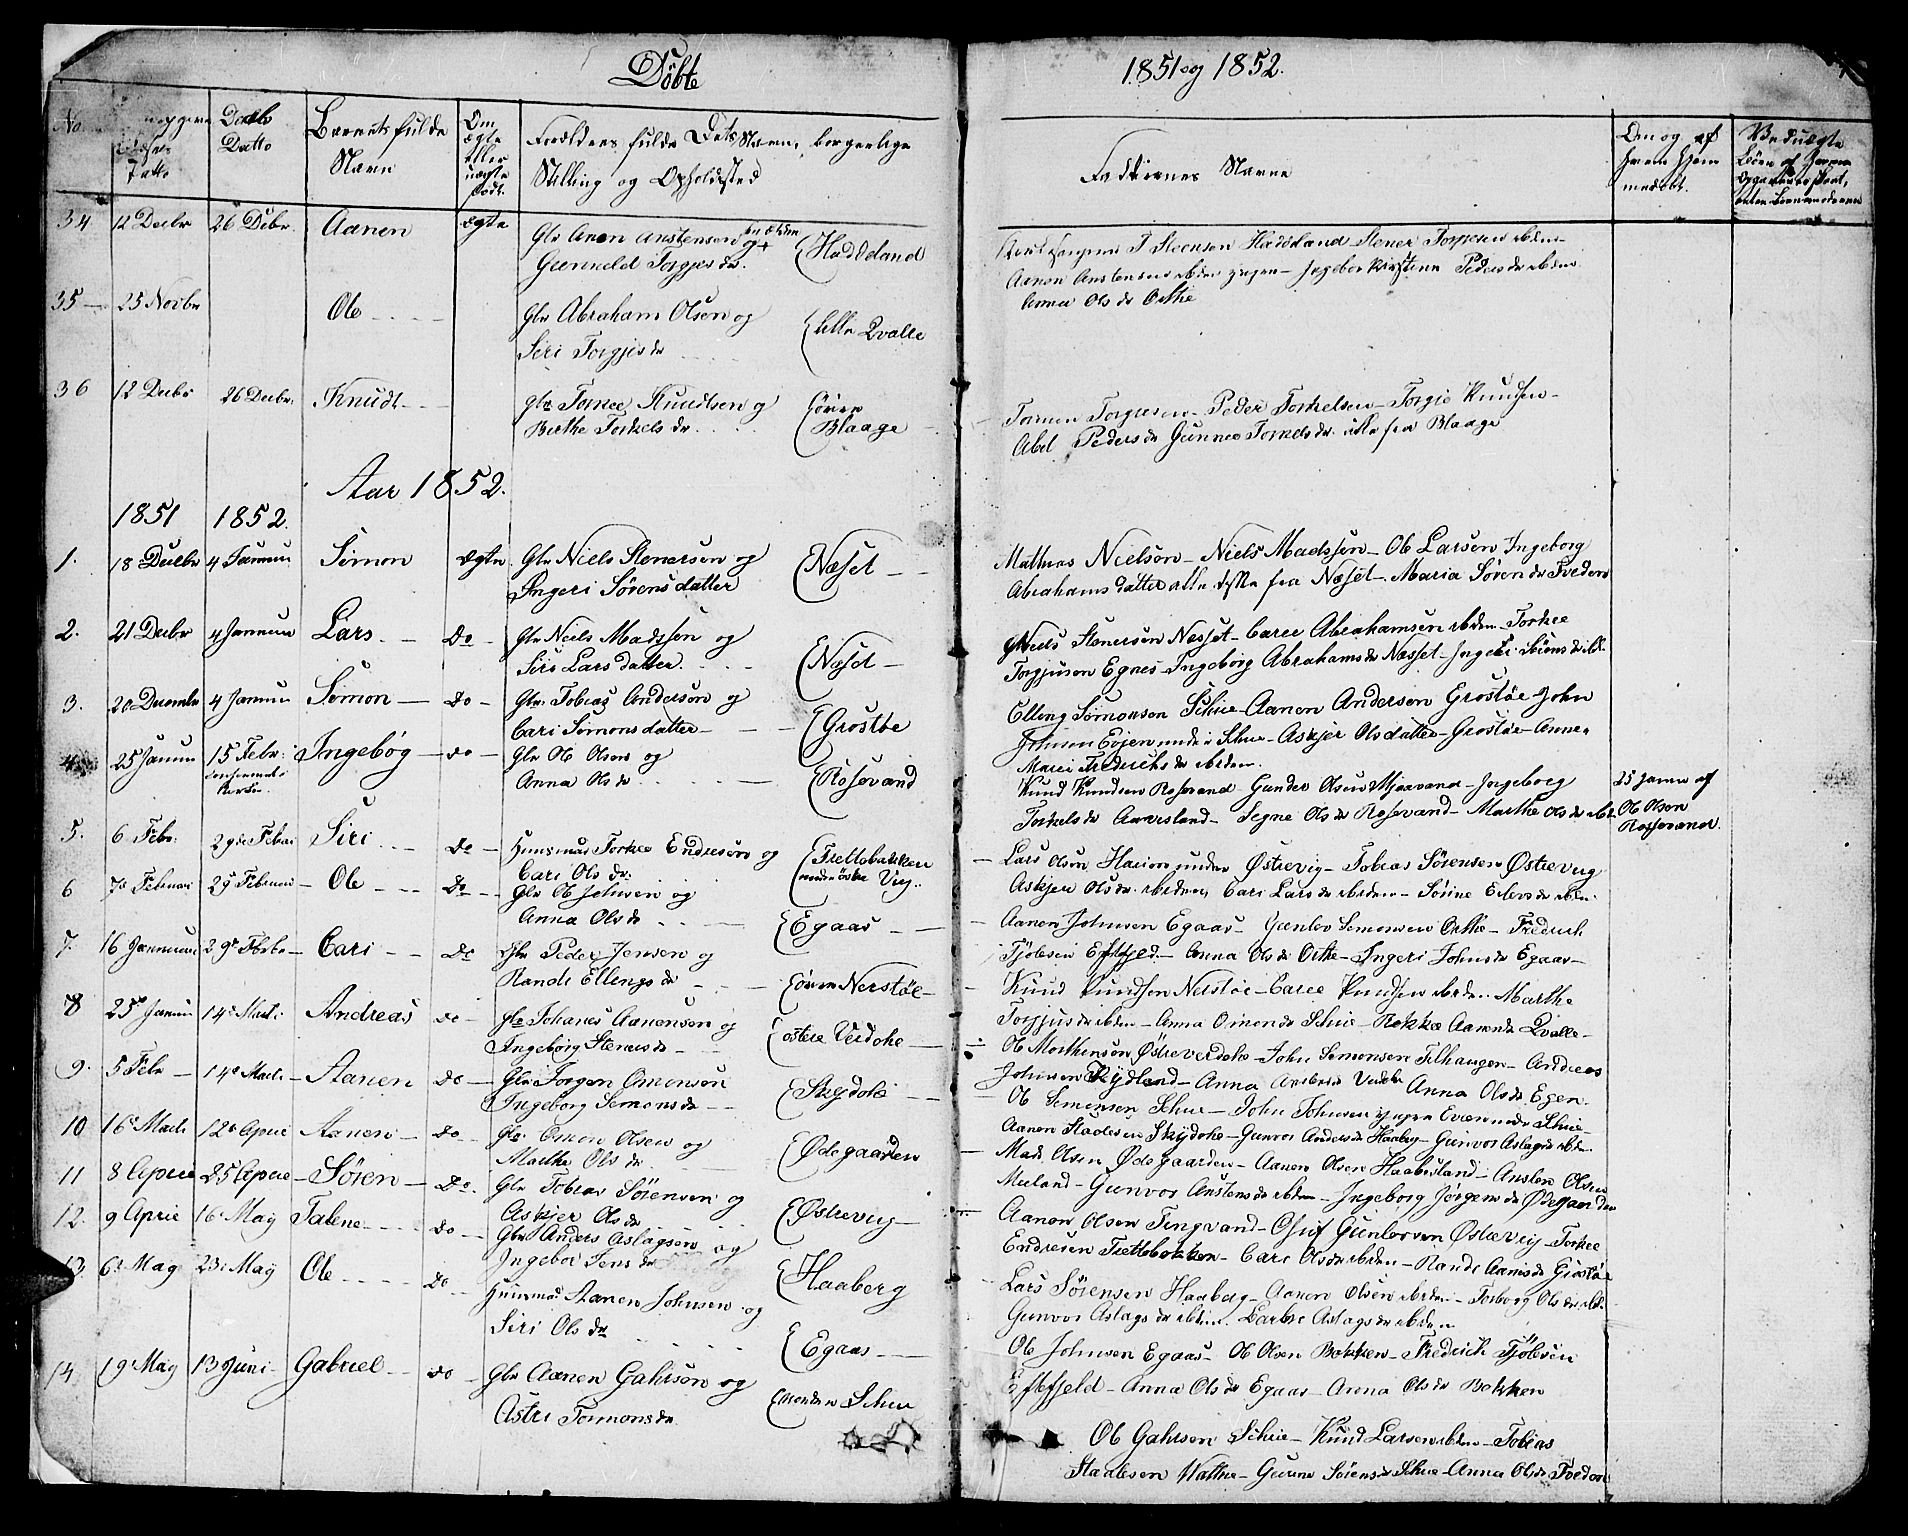 Döbte
1851 og 1852.
No.
Datto
Daabs Datto
Barnets fulde Navn
Om ægte eller uægte födt.
Forældres fulde Navn, borgerlige Stilling og Opholdssted
Faddernes Navne
34 12 Decbr 26 Debr. Aanen ægte Gbr Anen Anstensen og Gunneld Torgjes dr. Haddeland
Aanen Anstensen ibdm yngre - Ingebor Kirstine Peders dr ibdm
Anna Ols dr Orthe
35 25 Novbr Ole Gbr Abraham Olsen og Siri Torgjes dr lille Qvalle
36 12 Decbr 26 Decbr. Knudt Gbr Torkee Knudtsen og Berthe Torkels dr. övre Blaage
Tormen Torgiesen - Peder Torkelsen - Torgie Knudsen -
Abel Peders dr Gunnee Torkels dr. alle fra Blaage
Aar 1852.
1851 1852.
1. 18 Decbr 4 Januar Sömon ægte Gbr Niels Stenersen og Ingeri Sörens datter Næset
Mathias Nielson - Niels Madssen - Ole Larsen Ingeborg
Abrahams datter alle disse fra Næset - Maria Sören dr Tveden
2. 21 Decbr 4 Januar Lars Do Gbr Niels Madssen og Siri Lars datter Næset
Niels Stenersen Næsset - Caree Abrahamsen ibdm - Torkee
Torgjusen Egnes - Ingeborg Abrahams dr Næsset - Ingeri Sörens dr ibd.
3. 20 Decembr 4 Januar Sömon Do Gbr. Tobias Anderson og Cari Sömons datter Grostöe
Elling Sömonsen Schue - Aanen Andersen Grostöe John
Johnsen Eöjen under Schue - Askjer Ols datter - Grostöe - Anne
Marei Fredrichs dr ibdem.
4 25 Januar 15 Febr. Ingebög do Gbr Ole Olsens og Anna Ols dr Rosevand
Knud Knudsen Rosevand Gunder Olsen Mjaavand - Ingeborg
Torkels dr Aaversland - Segne Ols dr Rosevand - Marthe Ols dr ibd
25 Janua af Ole Olsen Rosevand.
5. 6 Febr. 29de Febar Siri Do Huusmand Torkee Endresen og Cari Ols dr. Trettebakken under östre Vig.
Lars Olsen Haaven under Östrevig - Tobias Sörensen Östrevig
Askjer Ols dr. ibdem, Cari Lars dr ibdem - Sörine Eilers dr ibdm.
6 7de Februar 29 Februar Ole Do Gbr Ole Johnsen og Anna Ols dr Egaas
Aanen Johnsen Egaas - Gunlov Semonsen Orthe - Fredrich
Tjölesen Eftefjeld - Anna Ols dr Orthe - Ingeri Johns dr Egaas -
7. 16 Januar 29de Febr Cari Do Gbr Peder Jensen og Randi Ellengs dr övre Nerstöe
Knud Knudsen Nerstöe - Caree Knudsen ibdem. Marthe
Torgjus dr ibdm - Anna Omen dr Schue - Rekke Aanen dr Qvalle -
8 25 Januar 14 Marti Andreas do Gbr Johanes Aanensen og Ingeborg Steners dr östere Veidohe
Ole Morthenson Östreverdohe - John Semonsen Felhaugen - Andreas
Johnsen Rydland - Anna Anstens dr Verdohe Anna Ols dr Egen.
9. 5 Febr 14 Marti Aanen Do Gbr Jorgen Omensen Ingeborg Semons dr Skydohe
Ole Semensen Schue - John Johnsen yngre Evæen under Schue -
Aanen Stadesen Skydohe - Gunvor Anders dr Haaberg - Gunvor Aslags dr ibdm.
10 16 Marti 12 Aprie Aanen Do Gbr. Omen Olsen og Marthe Ols dr. Ödegaarden
Mads Olsen Ödegaarden - Aanen Olsen Haaversland - Ansten Olsen
Meland - Gunvor Anstens dr ibdem - Ingeborg Jorgens dr Ödegaarden
11 8 Aprie 25 Aprie Sören Do. Gbr Tobias Sörensen og Askjer Ols dr Östrevig
Aanen Olsen Tingvand - Oluf Gunlovsen Östrevig - Torkee
Endresen Trettebakken - Cari Ols dr ibdem - Randi Aanis dr Grostöe
12. 9 Aprie 16 May Talene Do Gbr Anders Aslagsen og Ingebor Jens dr Haaberg
Lars Sörensen Haaberg - Aanen Olsen ibdem - Torborg Ols dr ibd.
Gunvor Aslags dr ibdem. Barbre Aslags dr ibdem
13 6 May 23 May Ole Do Huusmd. Aanen Johnsen og Siri Ols dr Egaas
Ole Johnsen Egaas - Ole Olsen Bokken - Fredrich Tjölesen
Eftefjeld - Anna Ols dr Egaas - Anna Ols dr Bokken
14 19 May 13 Juni Gabriel do Gbr Aanen Gahrsen og Astri Tormons dr Norden Schue
Ole Gahrsen Schue - Knud Larsen ibdem - Tobias
Stadesen Watne - Gunne Sörens dr Schue - Anna Ols dr Tveden